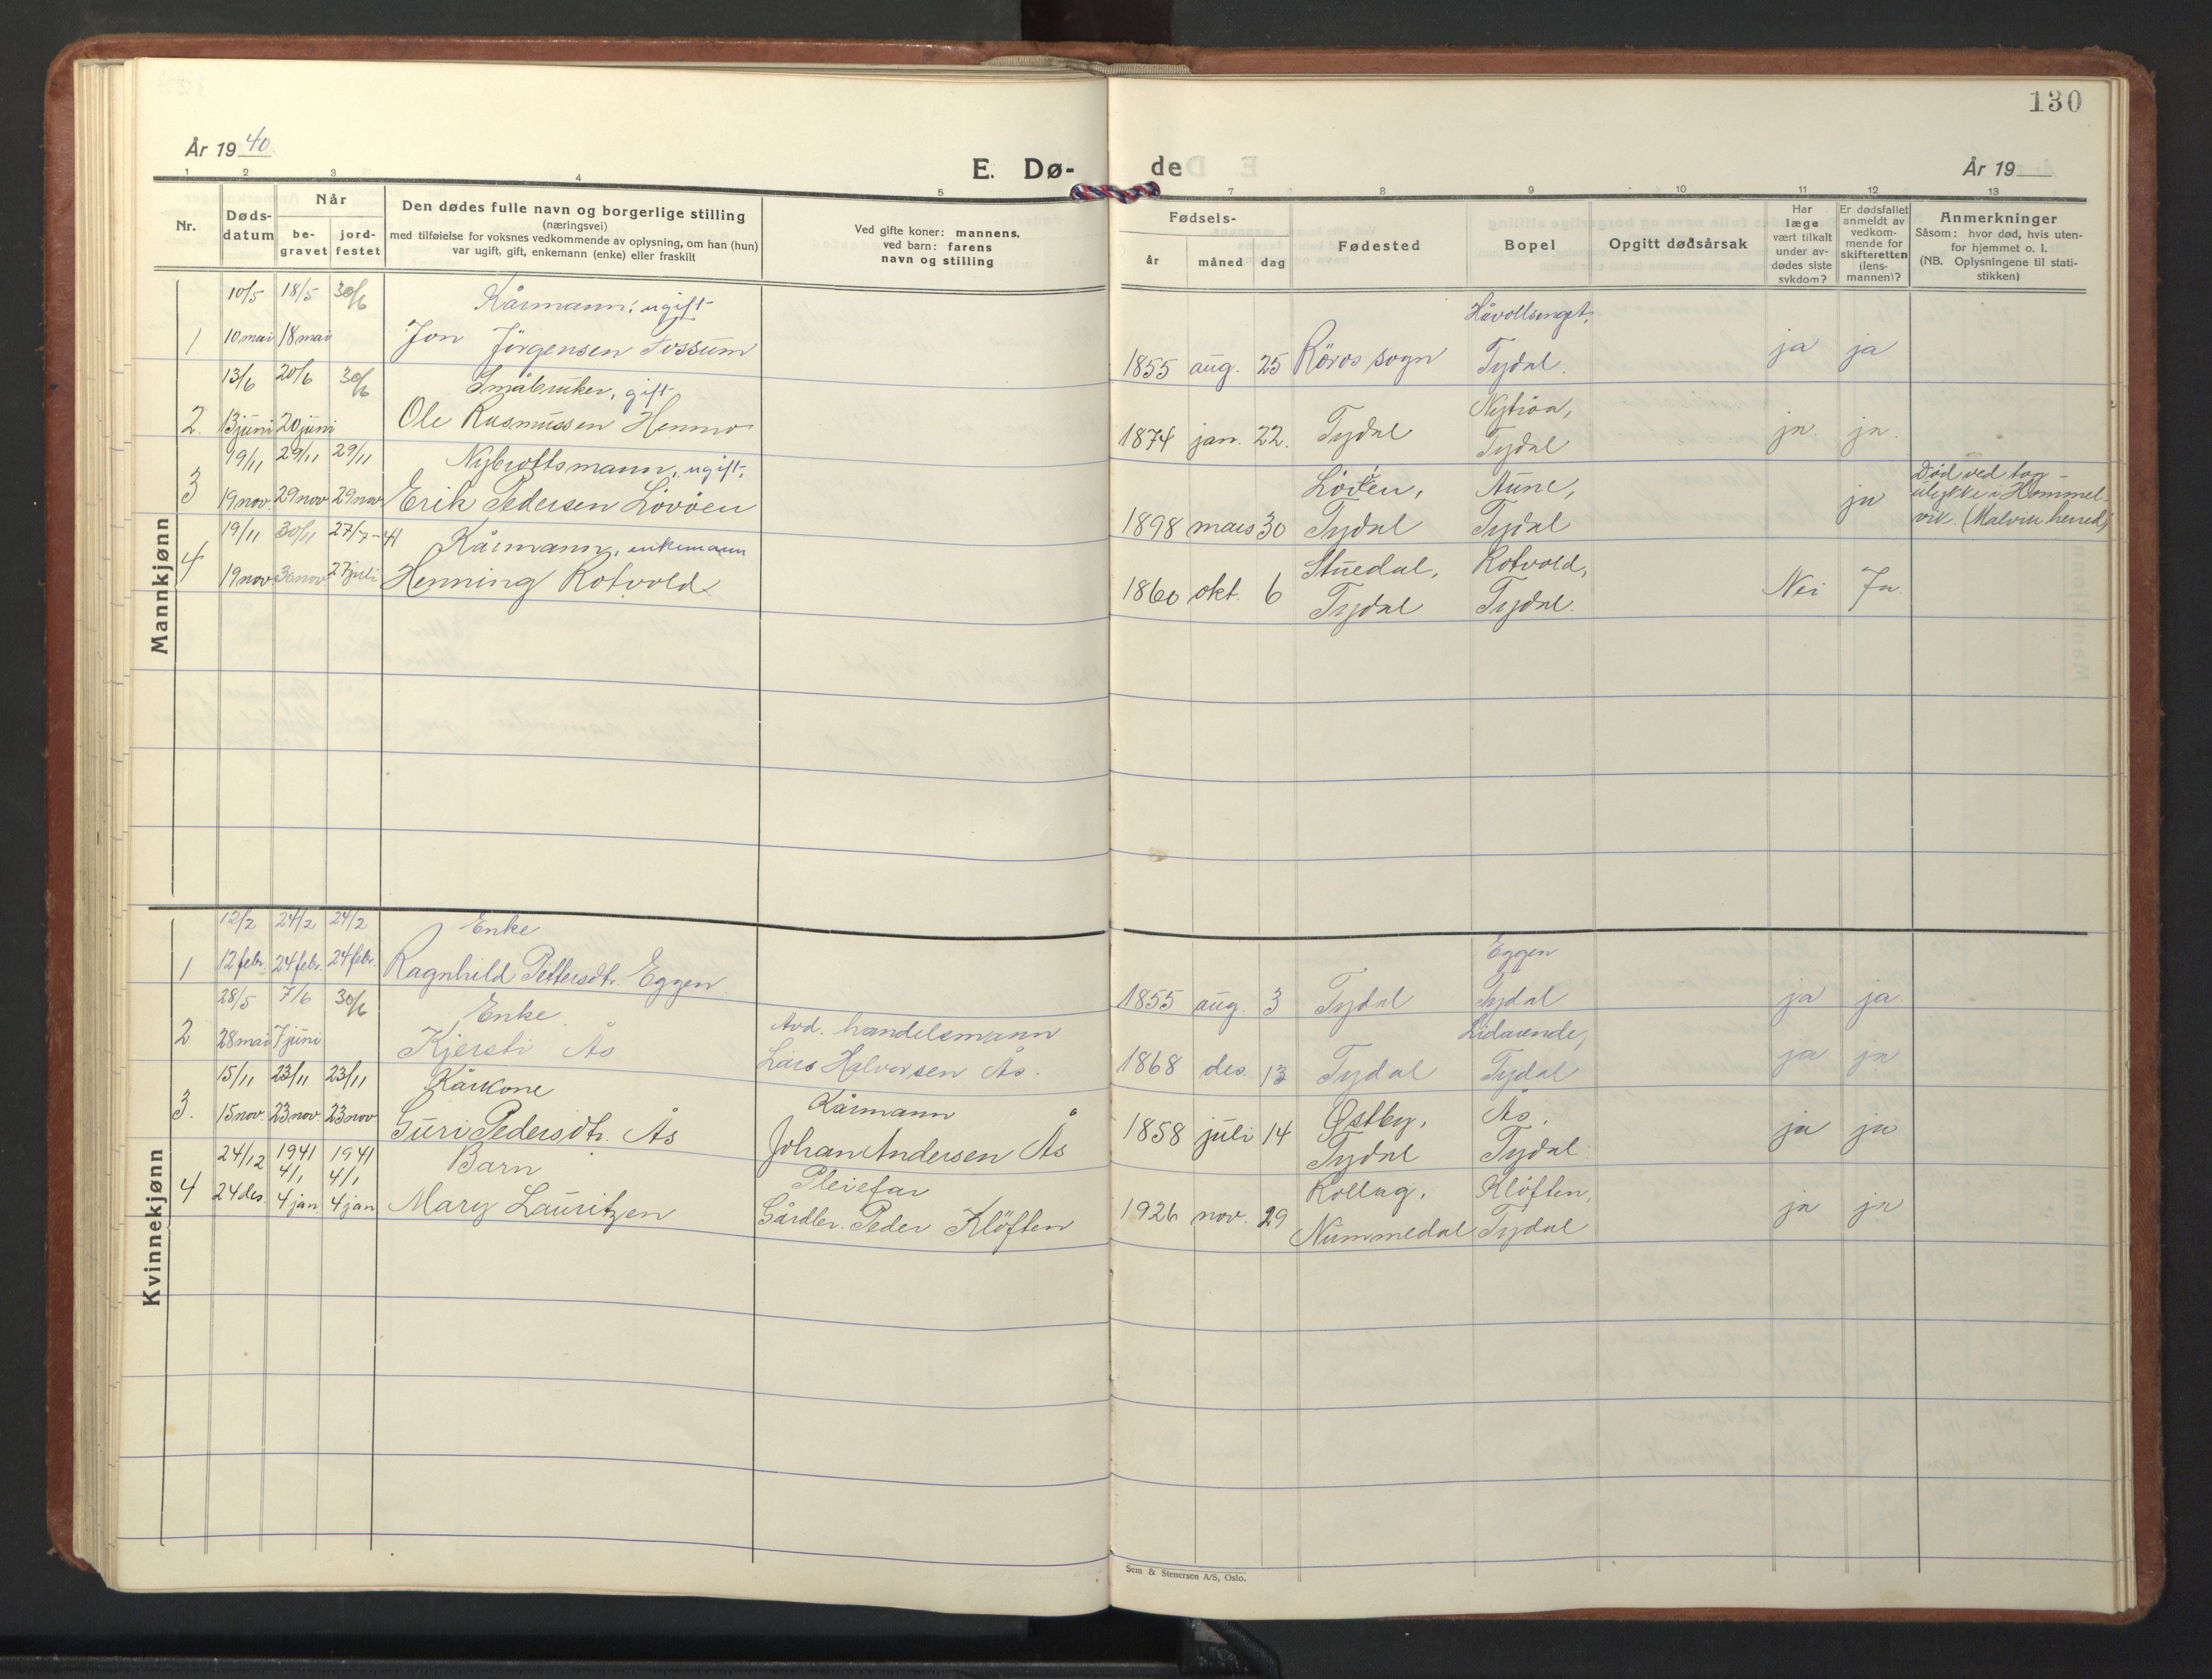 130
År 1940
E. Dø-
de
År 19
1 2 3 4 5
7 8 9 10 11 12 13
Nr.
Døds-
datum
Når
be-
gravet
jord-
festet
Den dødes fulle navn og borgerlige stilling
(næringsvei)
med tilføielse for voksnes vedkommende av oplysning, om han (hun)
var ugift, gift, enkemann (enke) eller fraskilt
Ved gifte koner: mannens,
ved barn: farens
navn og stilling
Fødsels-
år måned dag
Fødested
Bopel
Opgitt dødsårsak
Har
læge
vært tilkalt
under av-
dødes siste
sykdom?
Er dødsfallet
anmeldt av
vedkom-
mende for
skifteretten
(lens-
mannen)?
Anmerkninger
Såsom: hvor død, hvis uten-
for hjemmet o. l.
(NB. Oplysningene til stati-
stikken)
Mannkjønn
10/5 18/5 30/6 Kårmann, ugift Håvollsenget,
1. 10 mai 18 mai Jon Jörgensen Fossum 1855 aug. 25 Röros sogn Tydal. ja ja
13/6 20/6 30/6 Småbruker, gift Nytröa,
2. 13 juni 20 juni Ole Rasmussen Henmo 1874 jan. 22. Tydal Tydal ja. ja.
19/11 29/11 29/11 Nybrottsmann, ugift, Lövöen, Aune, Död ved tog-
ulykke i Hommel-
3 19 nov. 29 nov 29 nov Erik Pedersen Lövöen 1898 mars 30 Tydal Tydal ja vik. (Malvik herred)
19/11 30/11 27/7-41 Kårmann, enkemann Stuedal, Rotvold,
4 19 nov. 30 nov 27 juli Henning Rotvold 1860 okt. 6 Tydal Tydal. Nei Ja.
Kvinnekjønn
12/2 24/2 24/2 Enke Eggen
1 12 febr. 24 febr. 24 febr. Ragnhild Pettersdtr. Eggen. 1855 aug. 3 Tydal Tydal ja ja
28/5 7/6 30/6 Enke Avd. handelsmann Lidarende,
2 28 mai 7 juni Kjersti Ås Lars Halvorsen Ås. 1868 des. 13 Tydal Tydal ja ja
15/11 23/11 23/11 Kårkone Kårmann Østby, Ås,
3. 15 nov. 23 nov. 23 nov Guri Pedersdtr. Ås Johan Andersen Ås 1858 juli 14 Tydal Tydal. ja ja
24/12 1941 4/1 1941 4/1 Barn Pleiefar Rollag, Klöften,
4 24 des. 4 jan. 4 jan Mary Lauritzen Gårdbr. Peder Klöften 1926 nov. 29 Nummedal Tydal ja ja
Sem & Stenersen A/S, Oslo.